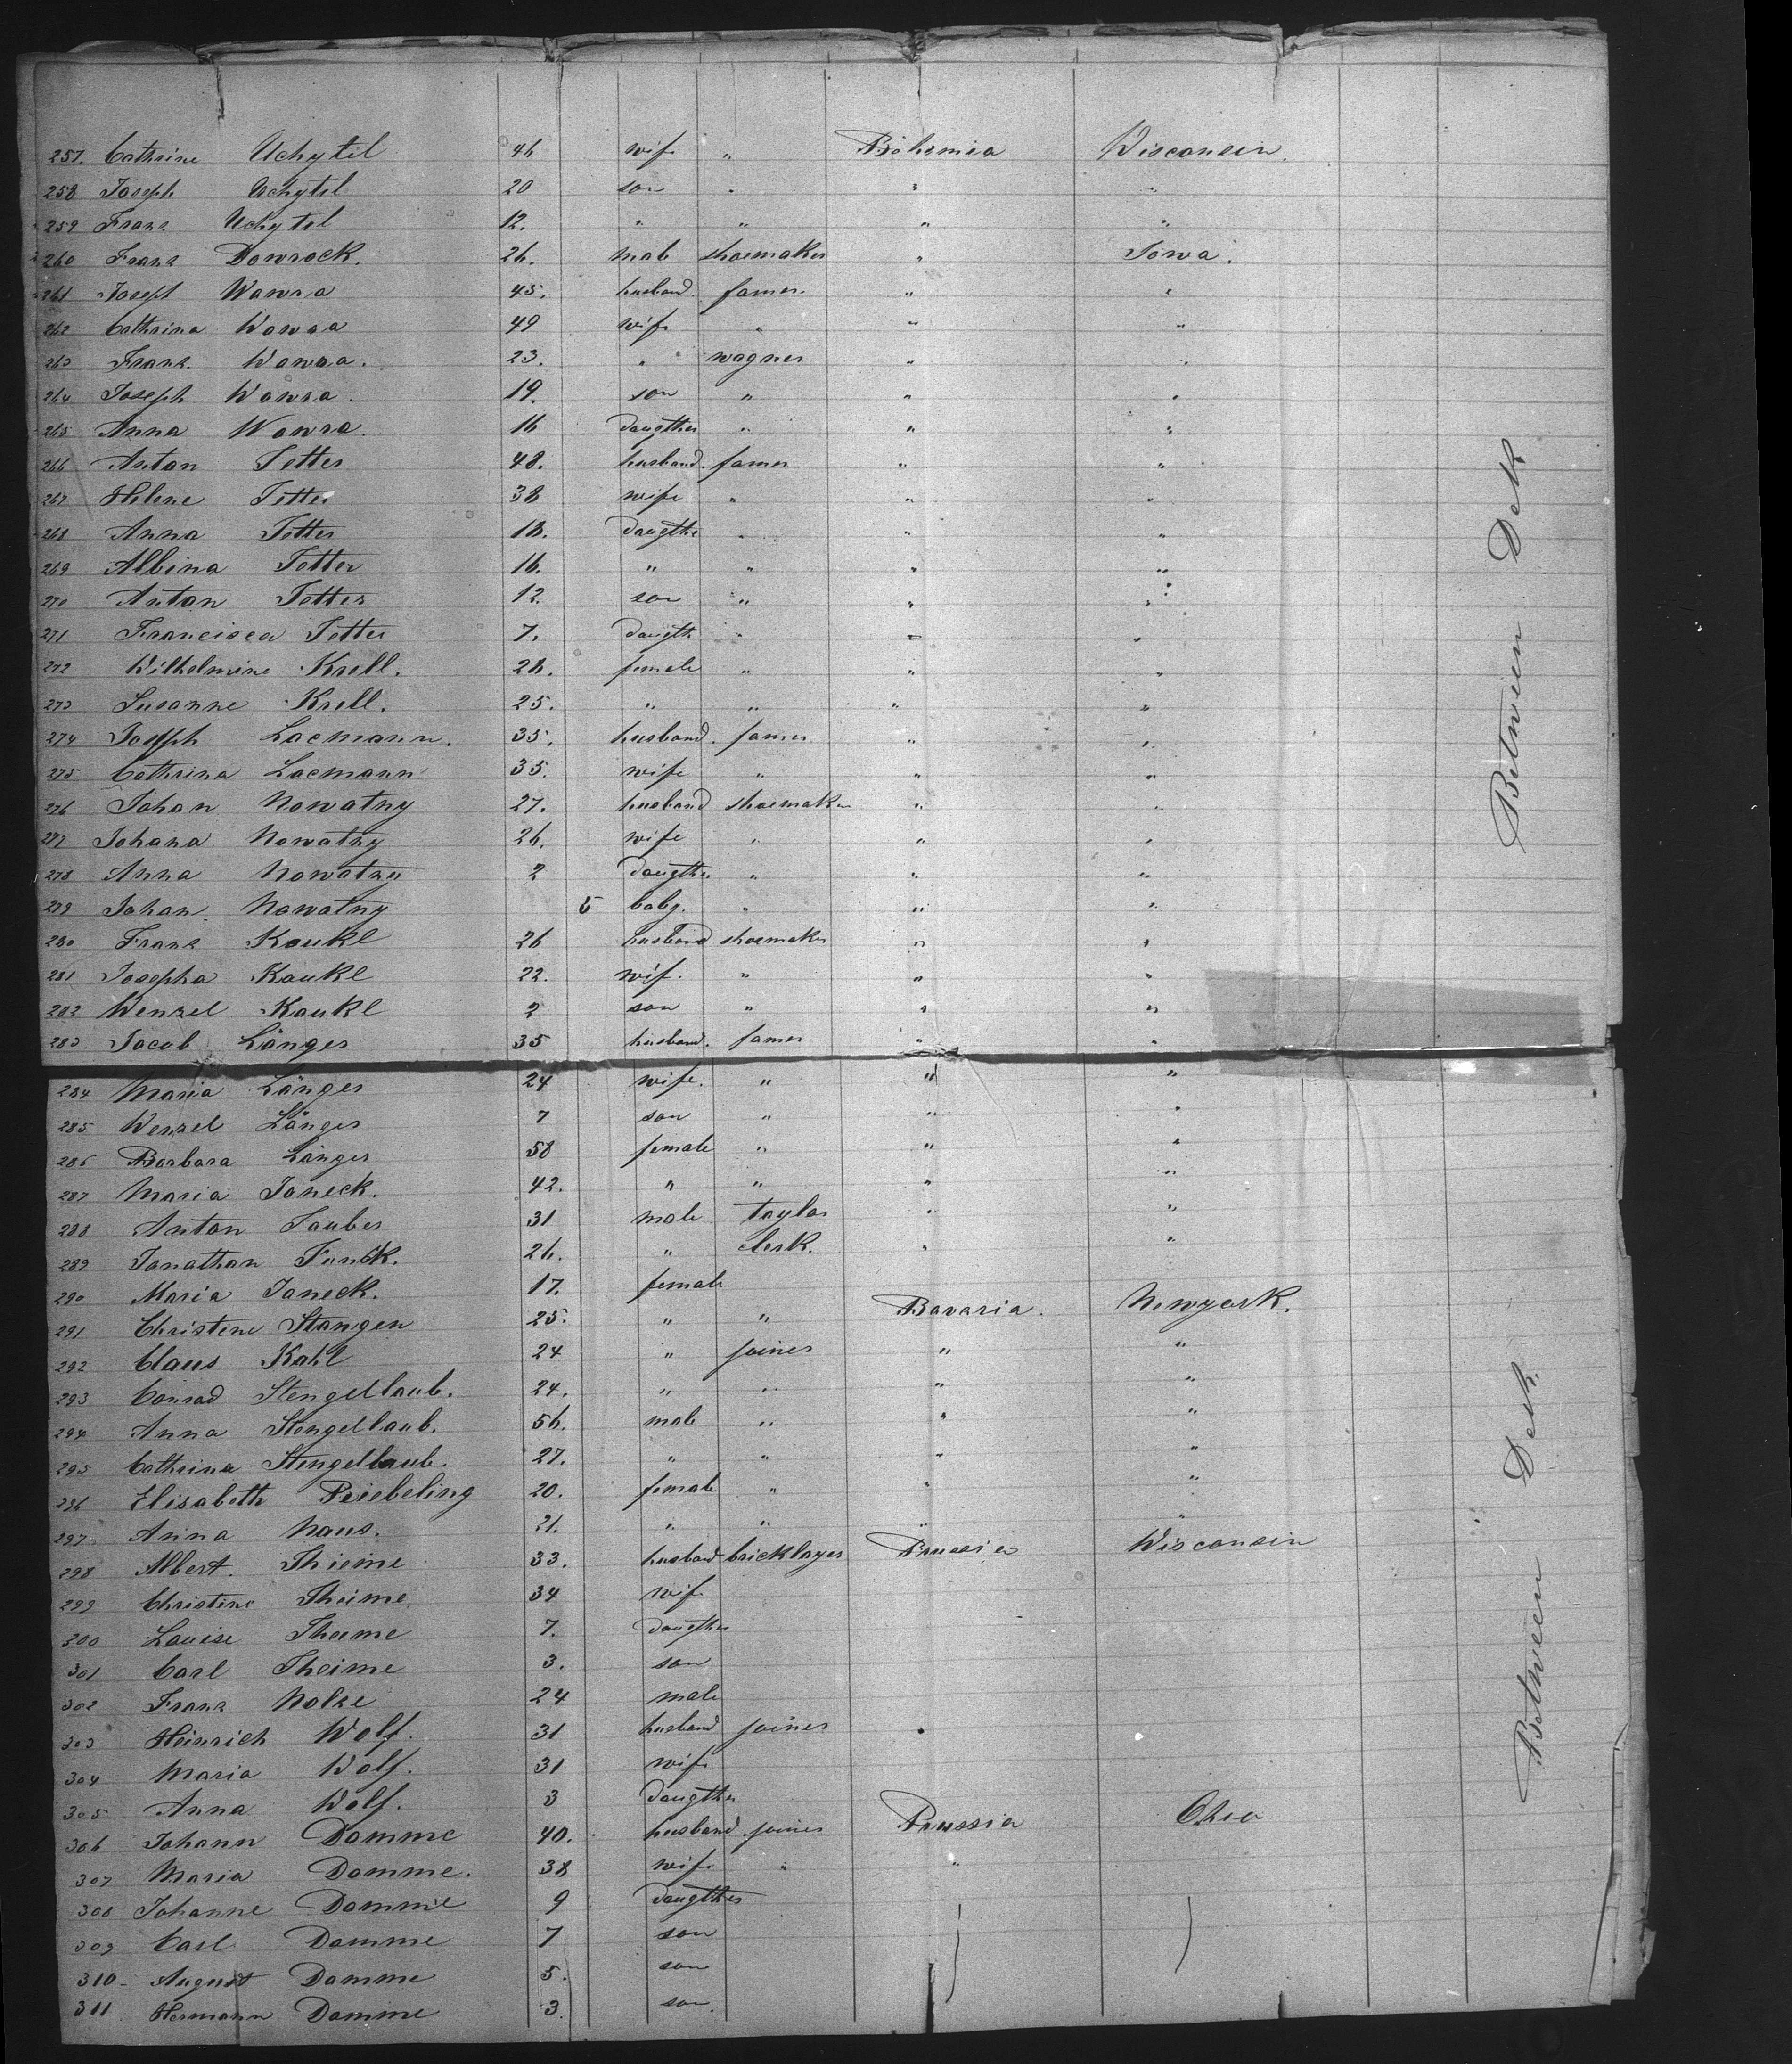 257. Cathrine Uchytil 46 wife " Bohemia Wisconsin.
258 Joseph Uchytil 20 son " " "
259 Franz Uchytil 12. " " " "
260 Franz Dowrock. 26. male shoemaker " Iowa.
261 Joseph Wawra 45. husband. famer. " "
262 Cathrina Wawra 49 wife " " "
263 Franz. Wawra. 23. " wagner " "
264 Joseph Wawra. 19. son " " "
265 Anna Wawra. 16 daugther " " "
266 Anton Tetter 48. husband. famer " "
267 Helene Tetter 38 wife " " "
268 Anna Tetter 18. daugther " " "
269 Albina Tetter 16. " " " "
270 Anton Tetter 12. son " " "
271 Francisca Tetter 7. daugth " " "
272 Wilhelmine Krell. 26. female " " "
273 Susanne Krell. 25. " " " "
274 Joseph Lacmann. 35. husband. famer " "
275 Cathrina Lacmann 35. wife " " "
276 Johan Nowatny 27. husband shoemaker " "
277 Johana Nowatny 26. wife " " "
278 Anna Nowatny 2 daugther " " "
279 Johan Nowatny 5 baby. " " "
280 Franz Kaukl 26 husband shoemaker " "
281 Josepha Kaukl 22. wif. " " "
282 Wenzel Kaukl 2 son " " "
283 Jacob Länger 35 husband. famer " "
284 Maria Länger 24 wife. " " "
285 Wenzel Länger 7 son " " "
286 Barbara Länger 58 female " " "
287 Maria Janeck. 42. " " " "
288 Anton Tauber 31 male taylor " "
289 Jonathan Funck. 26. " clerk. " "
290 Maria Janeck. 17. female
291 Christine Stangen 25. " " Bavaria. Newyork.
292 Claus Kahl 24 " joiner " "
293 Conrad Stengellaub. 24. " " " "
294 Anna Stengellaub. 56. male " " "
295 Cathrina Stengellaub. 27. " " " "
296 Elisabeth Priebeling 20. female " " "
297 Anna Naus. 21. " " " "
298 Albert. Thieme 33. husband bricklayer Prussia Wisconsin
299 Christine Theime 34 wife
300 Louise Theime 7. daugther
301 Carl Theime 3. son
302 Franz Nolze 24 male
303 Heinrich Wolf. 31 husband joiner "
304 Maria Wolf. 31 wife
305 Anna Wolf. 3 daugther
306 Johann Damme 40. husband. joiner Prussia Ohio
307 Maria Damme. 38 wife " "
308 Johanne Damme 9 daugther
309 Carl Damme 7 son
310 August Damme 5. son
311 Hermann Damme 3. son.
Between Dek
Between Dek